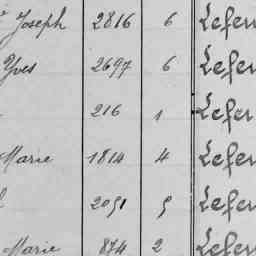 Joseph 2816 6 Lefeu
Yves 2697 6 Lefeu
216 1 Lefeu
Marie 1814 4 Lefeu
2091 5 Lefeu
Marie 874 2 Lefeu